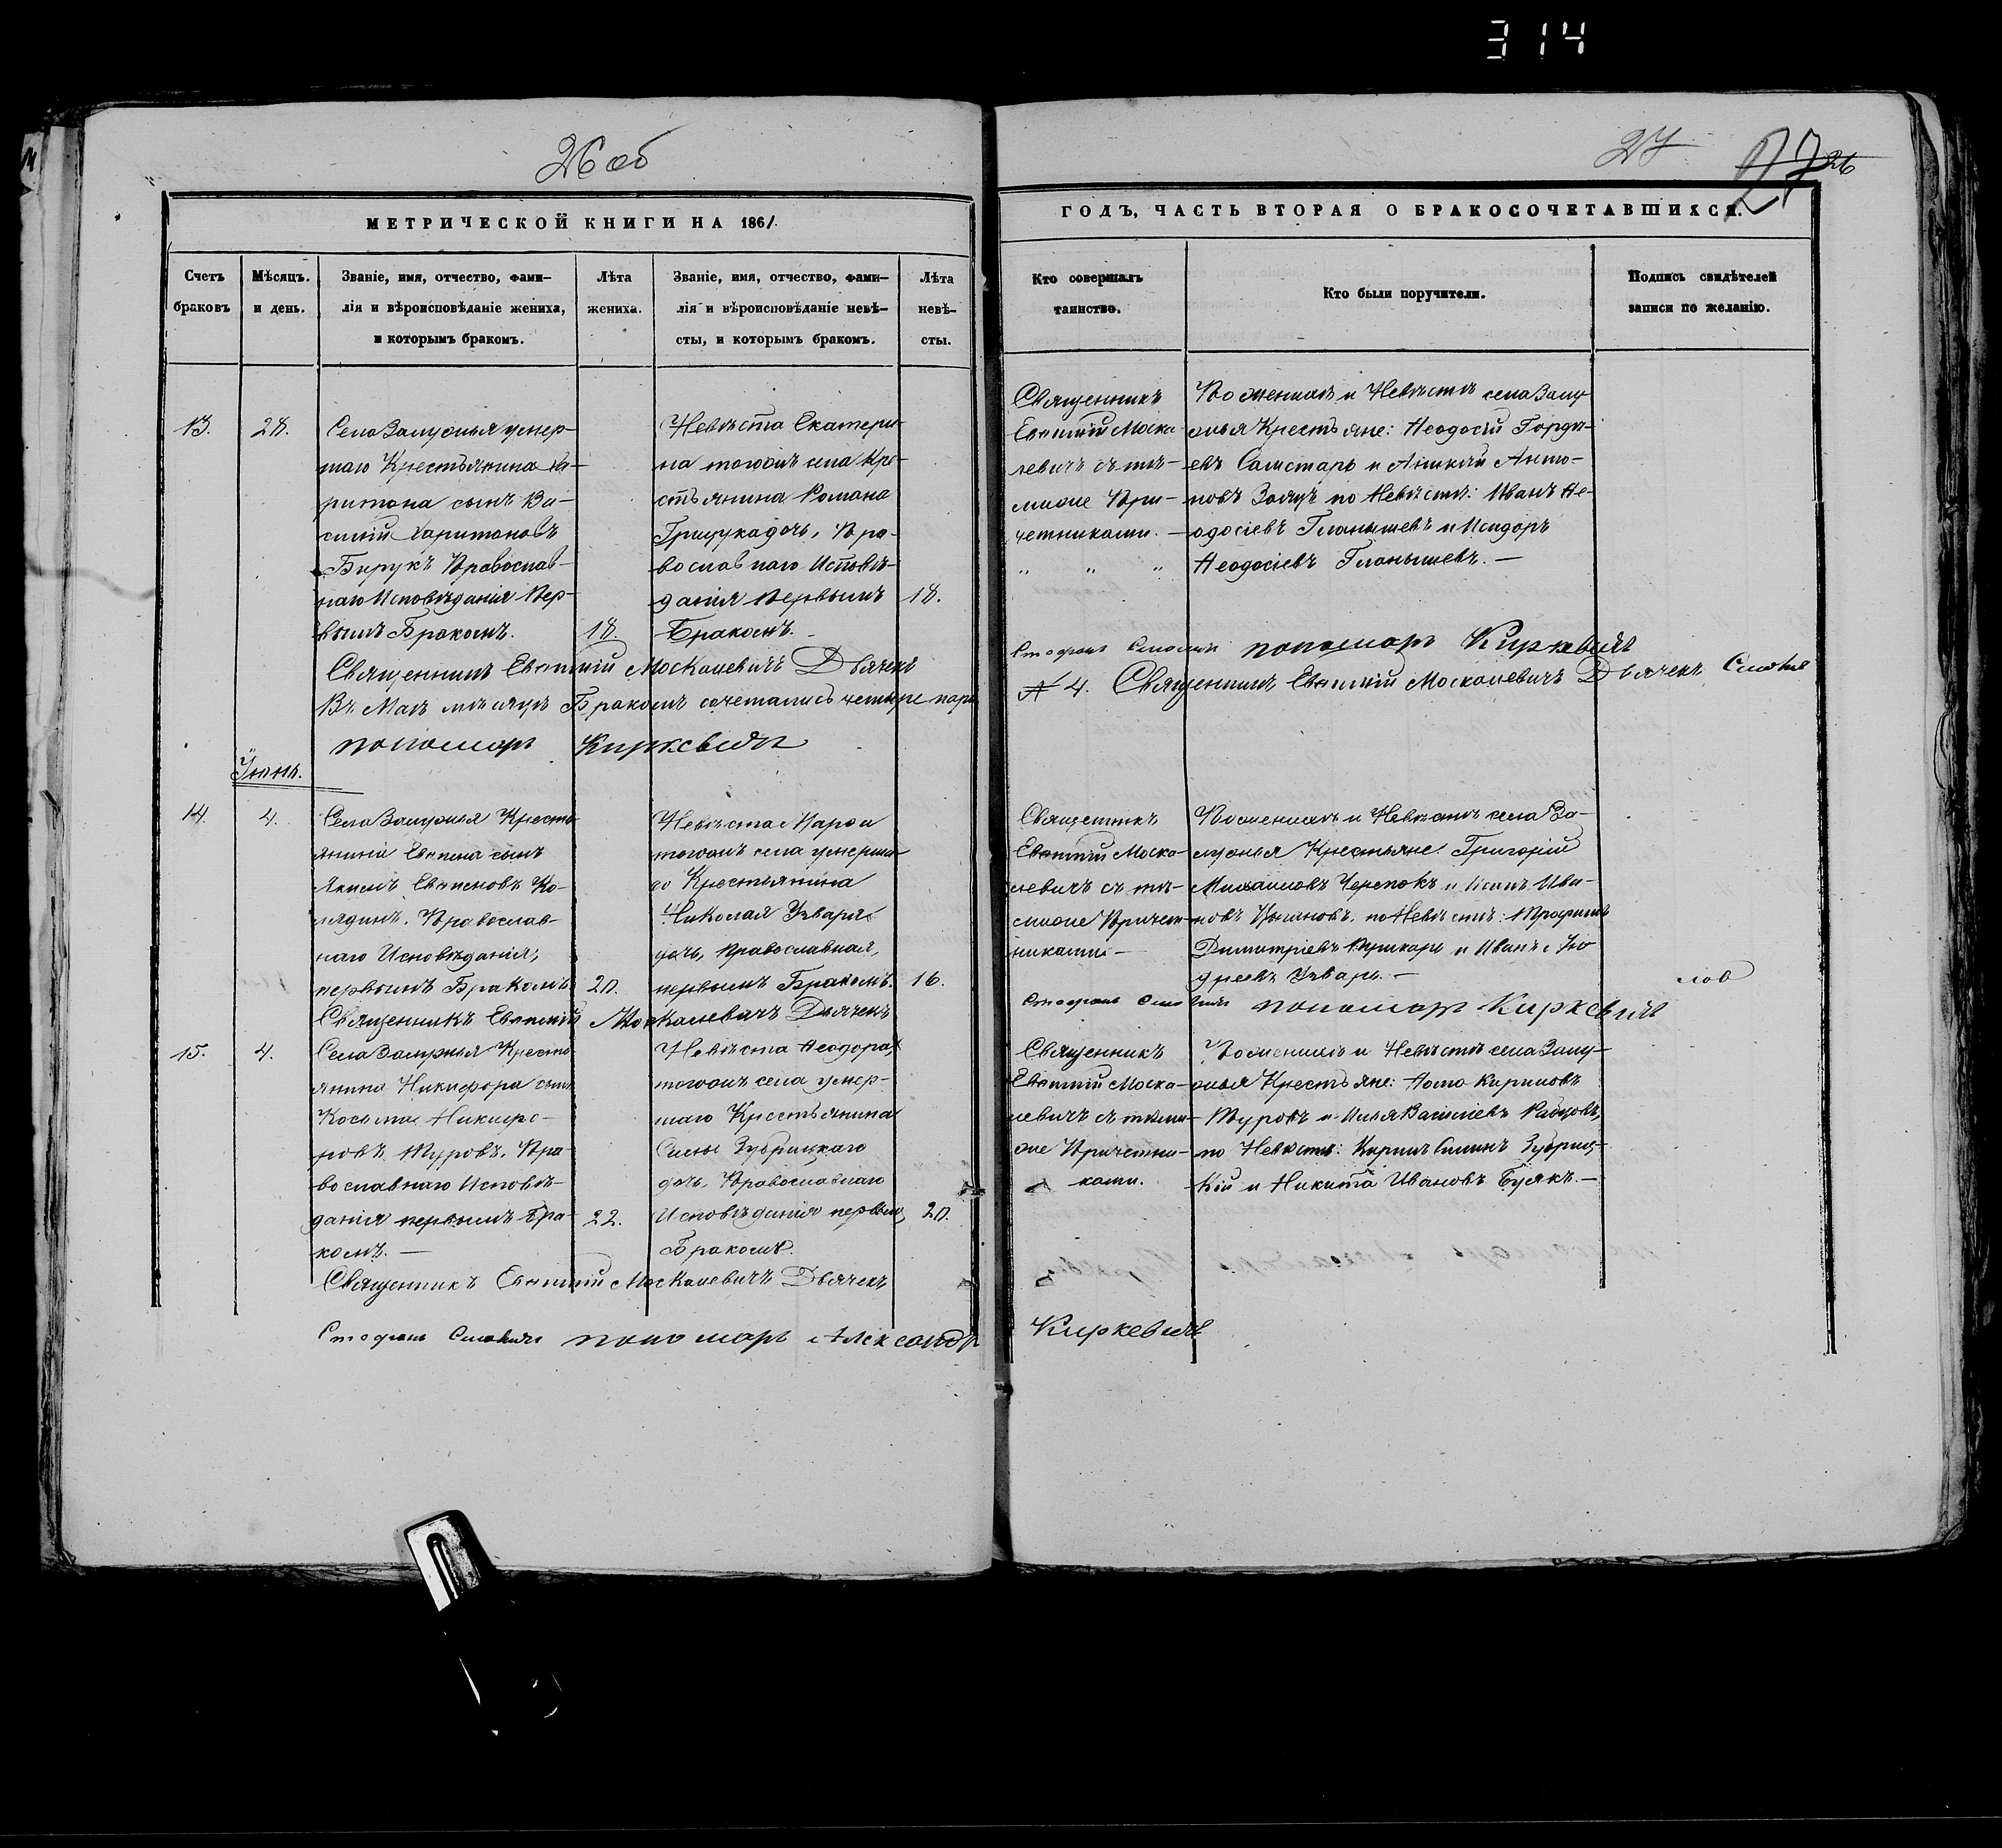 314
26 об
27
27 26
МЕТРИЧЕСКОЙ КНИГИ НА 1861.
ГОДЪ, ЧАСТЬ ВТОРАЯ О БРАКОСОЧЕТАВШИХСЯ.
Счетъ
браковъ
Мѣсяцъ.
и день.
Званіе, имя, отчество, фами–
лія и вѣроисповѣданіе жениха,
и которымъ бракомъ.
Лѣта
жениха.
Званіе, имя, отчество, фами–
лія и вѣроисповѣданіе невѣ–
сты, и которымъ бракомъ.
Лѣта
невѣ–
сты.
Кто совершалъ
таинство.
Кто были поручители.
Подпись свидѣтелей
записи по желанію.
13.
28.
Села Залужья умер-
шаго Крестьянина Ха-
ритона сынъ Ва-
силій Харитоновъ
Бирукъ Православ-
наго Исповѣданія Пер-
вымъ Бракомъ.
18.
Невѣста Екатери-
на тогожъ села Кре-
стьянина Романа
Грицука дочь, Пра-
вославнаго Исповѣ-
данія первымъ
Бракомъ.
18.
Священникъ
Евѳимій Моска-
левичъ съ тѣ-
миже При-
четниками. –
По женихѣ и Невѣстѣ села Залу-
жья Крестьяне: Ѳеодосій Горди-
евъ и Антo-
новъ Заяцъ по Невѣстѣ: Иванъ Ѳе-
одосіевъ и Исидоръ
Ѳеодосіевъ
Священникъ Евѳимій Москалевичъ Дьячекъ
пономарь Киркевичъ
Въ Маѣ мѣсяцѣ Бракомъ сочетались четыре пары
№ 4. Священникъ Евѳимій Москалевичъ Дьячекъ
пономарь Киркевичъ
Іюнь.
14.
4.
Села Залужья Кресть-
янина сынъ
Ко-
лядинъ. Православ-
наго Исповѣданія,
первымъ Бракомъ
20.
Невѣста Марѳа
тогожъ села умерша-
го Крестьянина
Николая Узваря
дочь, Православная,
первымъ Бракомъ.
16.
Священникъ
Евѳимій Моска-
левичъ съ тѣ-
миже Причет-
никами –
По женихѣ и Невѣстѣ села За-
лужья Крестьяне Григорій
Михаиловъ Черепокъ и Ива-
новъ по Невѣстѣ: Трофимъ
Димитріевъ Пушкарь и Иванъ Ан-
дреевъ Узварь. –
Священникъ Евѳимій Москалевичъ Дьячекъ
пономарь Киркевичъ
15.
4.
Села Залужья Кресть-
янина Никифора сынъ
Косьма Никифо-
ровъ Туровъ. Пра-
вославнаго Исповѣ-
данія первымъ Бра-
комъ. –
22.
Невѣста Ѳеодора,
тогожъ села умер-
шаго Крестьянина
Силы Зубрицкаго
дочь, Православнаго
Исповѣданія первымъ
Бракомъ.
20.
Священникъ
Евѳимій Моска-
левичъ съ тѣми-
же Причетни-
ками.
По женихѣ и Невѣстѣ села Залу-
жья Крестьяне: Ѳома Кириловъ
Туровъ и Илья Василіевъ
по Невѣстѣ: Кирилъ Силинъ Зубриц-
кій и Никита Ивановъ Бусякъ. –
Священникъ Евѳимій Москалевичъ Дьячекъ
пономарь Александръ Киркевичъ